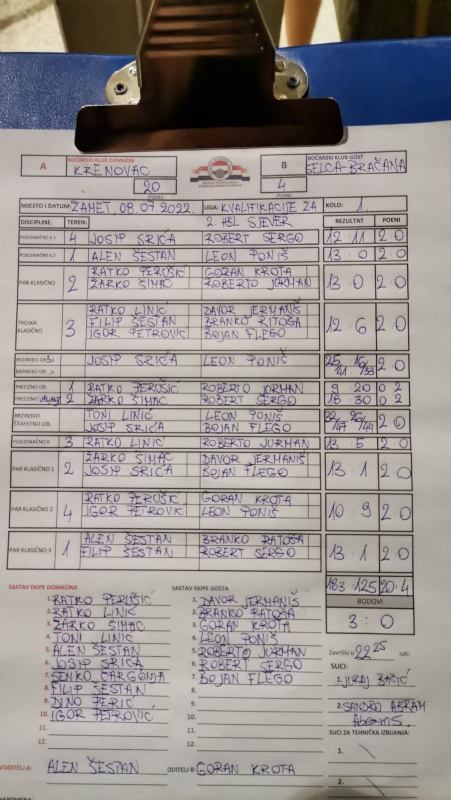 A BOĆARSKI KLUB DOMAĆIN KRENOVAC
20
B BOĆARSKI KLUB GOST SELCA-BRAČANA
4
MJESTO I DATUM: ZAMET, 08.07.2022 LIGA: KVALITIKACIJE ZA KOLO: 1.
2 HBL SJEVER
DISCIPLINE: TEREN: REZULTAT POENI
POJEDINAČNO K.1 4 JOSIP SRIĆA ROBERT SERGO 12 11 2 0
POJEDINAČNO K.2 1 ALEN ŠESTAN LEON PONIŠ 13 0 2 0
PAR KLASIČNO 2 RATKO PERUŠIĆ GORAN KROTA 13 0 2 0
ŽARKO ŠIMAC ROBERTO JORMAN
TROJKA KLASIČNO 3 RATKO LINIĆ DAVOR JERMANIŠ 12 6 2 0
FILIP ŠESTAN BRANKO RITOŠA
IGOR PETROVIC BOJAN FLEGO
BRZINSKO IZB. JOSIP SRIĆA LEON PONIŠ 25/41 16/33 2 0
PRECIZNO IZB. 1 RATKO PERUŠIĆ ROBERTO JORMAN 9 20 0 2
PRECIZNO 2 ŽARKO ŠIMAC ROBERT SERGO 18 30 0 2
BRZINSKO ŠTAFETNO IZB. TONI LINIĆ LEON PONIŠ 2 0
JOSIP SRIĆA BOJAN FLEGO
POJEDINAČNO K 3 RATKO LINIĆ ROBERTO JURMAN 13 5 2 0
PAR KLASIČNO 1 2 ŽARKO ŠIMAC DAVOR JERMANIŠ 13 1 2 0
JOSIP SRIĆA BOJAN FLEGO
PAR KLASIČNO 2 4 RATKO PERUŠIĆ GORAN KROTA 10 9 2 0
IGOR PETROVIK LEON PONIŠ
PAR KLASIČNO 3 1 ALEN ŠESTAN BRANKO RATOŠA 13 1 2 0
FILIP ŠESTAN ROBERT SERGO
183 125 20:4
BODOVI
3:0
SASTAV EKIPE DOMAĆINA
1. RATKO PERUŠIĆ
2. RATKO LINIĆ
3. ŽARKO ŠIMAC
4. TONI LINIĆ
5. ALEN ŠESTAN
6. JOSIP SRIĆA
7. SENKO ČARGONJA
8. FILIP ŠESTAN
9. DINO PERIĆ
10. IGOR PETROVIĆ
11.
12.
SASTAV EKIPE GOSTA
1. DAVOR JERMANIŠ
2. BRANKO RATOŠA
3. GORAN KROTA
4. LEON PONIŠ
5. ROBERTO JORMAN
6. ROBERT SERGO
7. BOJAN FLEGO
8.
9.
10.
11.
12.
Završilo u 22 25 sati
SUCI:
1. JURAJ BAŠIĆ
2. SANDRO ABRAM
Abrams.
SUCI ZA TEHNIČKA IZBIJANJA:
1.
2.
VODITELJ A: ALEN ŠESTAN
ODITELJ B: GORAN KROTA
NAPOMENA: